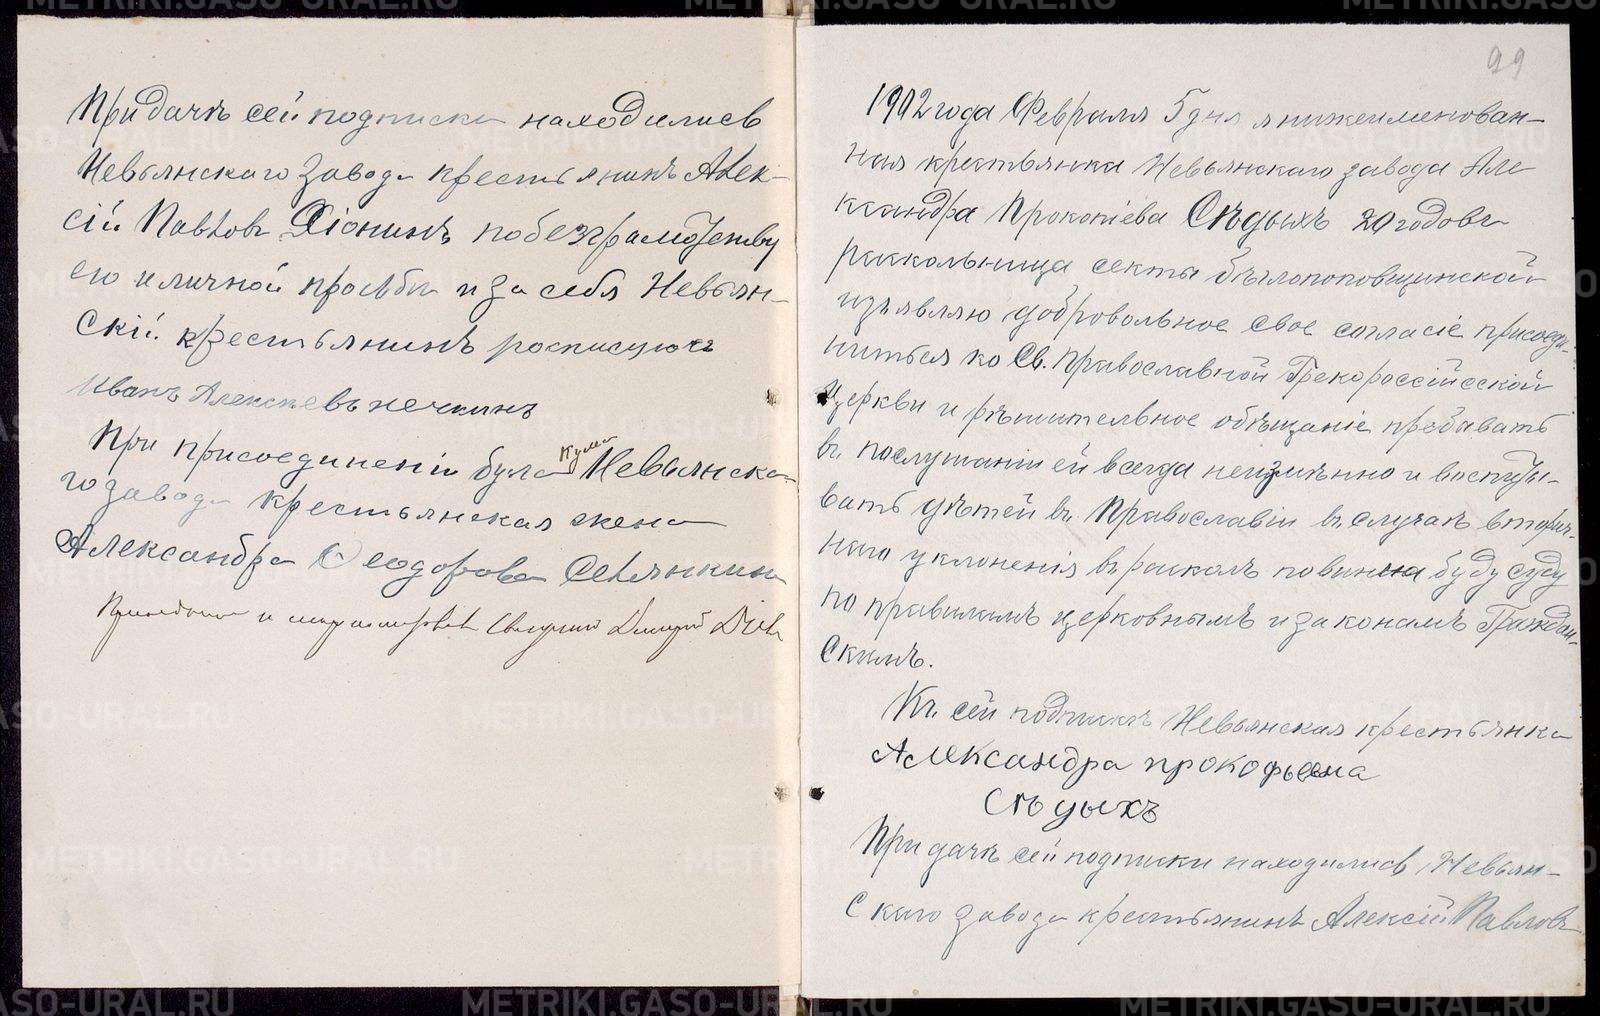 При дачѣ сей подписки находились
Невьянскаго завода крестьянинъ Алек-
сій Павловъ Хіонинъ по безграмотству
его и личной прозьбы и за себя Невьян-
скій крестьянинъ росписуюсь
Иванъ Алексѣевъ нечкинъ
При присоединеніи была Кума Невьянска-
го завода крестьянская жена
Александра Ѳеодорова Селянкина
Священникъ Димитрій
99
1902 года Февраля 5 дня я нижеименован-
ная крестьянка Невьянскаго завода Але
ксандра Прокопіева Сѣдыхъ 20 годовъ
раскольница секты бѣглопоповщинской
изъявляю добровольное свое согласіе присоеди-
ниться ко Св. Православной Грекороссійсской
Церкви и рѣшительное обѣщаніе пребывать
въ послушаніи ей всегда неизмѣнно и воспиты-
вать дѣтей въ Православіи въ случаѣ вторич-
наго уклоненія въ расколъ повинна буду суду
по правиламъ церковнымъ и законамъ Граждан-
скимъ.
Къ сей подпискѣ Невьянская крестьянка
Александра прокофьевна
Сѣдыхъ
При дачѣ сей подписки находились Невьян-
скаго завода крестьянинъ Алексій Павловъ
METRIKI.GASO-URAL.RU